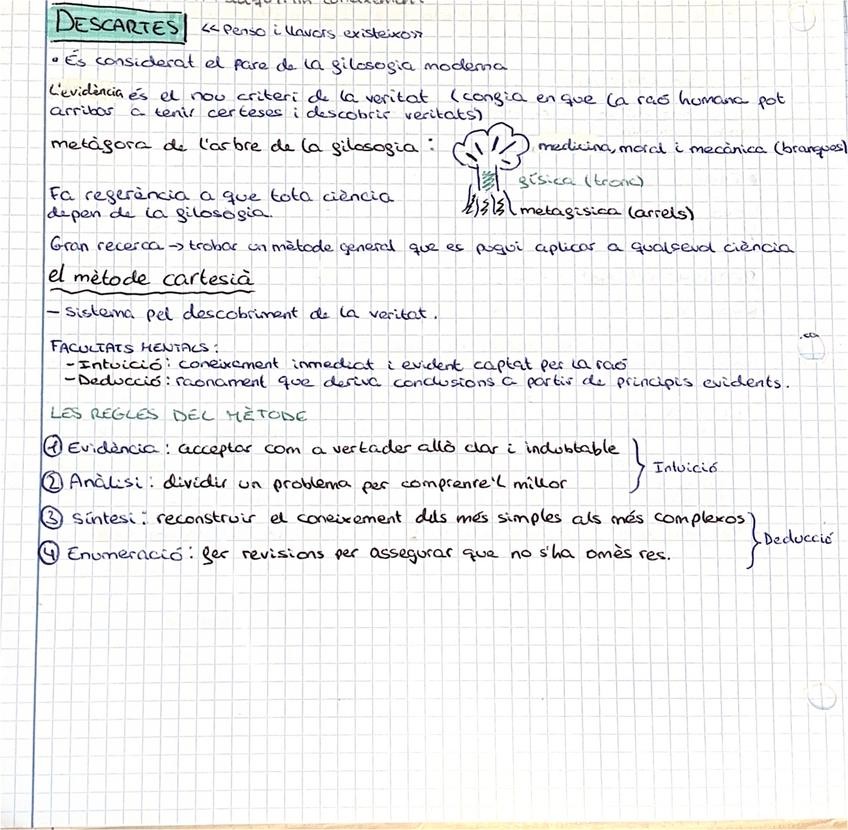 DESCARTES «Penso i llavors existeixo»
• És considerat el pare de la filosofia moderna
L'evidència és el nou criteri de la veritat (confia en que la raó humana pot
arribar a tenir certeses i descobrir veritats)
metàfora de l'arbre de la filosofia : medicina, moral i mecànica (branques)
física (tronc)
Fa referència a que tota ciència
depen de la filosofia.
metafísica (arrels)
Gran recerca → trobar un mètode general que es pugui aplicar a qualsevol ciència
el mètode cartesià
- Sistema pel descobriment de la veritat.
FACULTATS MENTALS:
- Intuició: coneixement inmediat i evident captat per la raó
- Deducció: raonament que deriva conclusions a partir de principis evidents.
LES REGLES DEL MÈTODE
1 Evidència: acceptar com a vertader allò clar i indubtable
Intuició
2 Anàlisi: dividir un problema per comprenre'l millor
3 Síntesi: reconstruir el coneixement dels més simples als més complexos
Deducció
4 Enumeració: fer revisions per assegurar que no s'ha omès res.